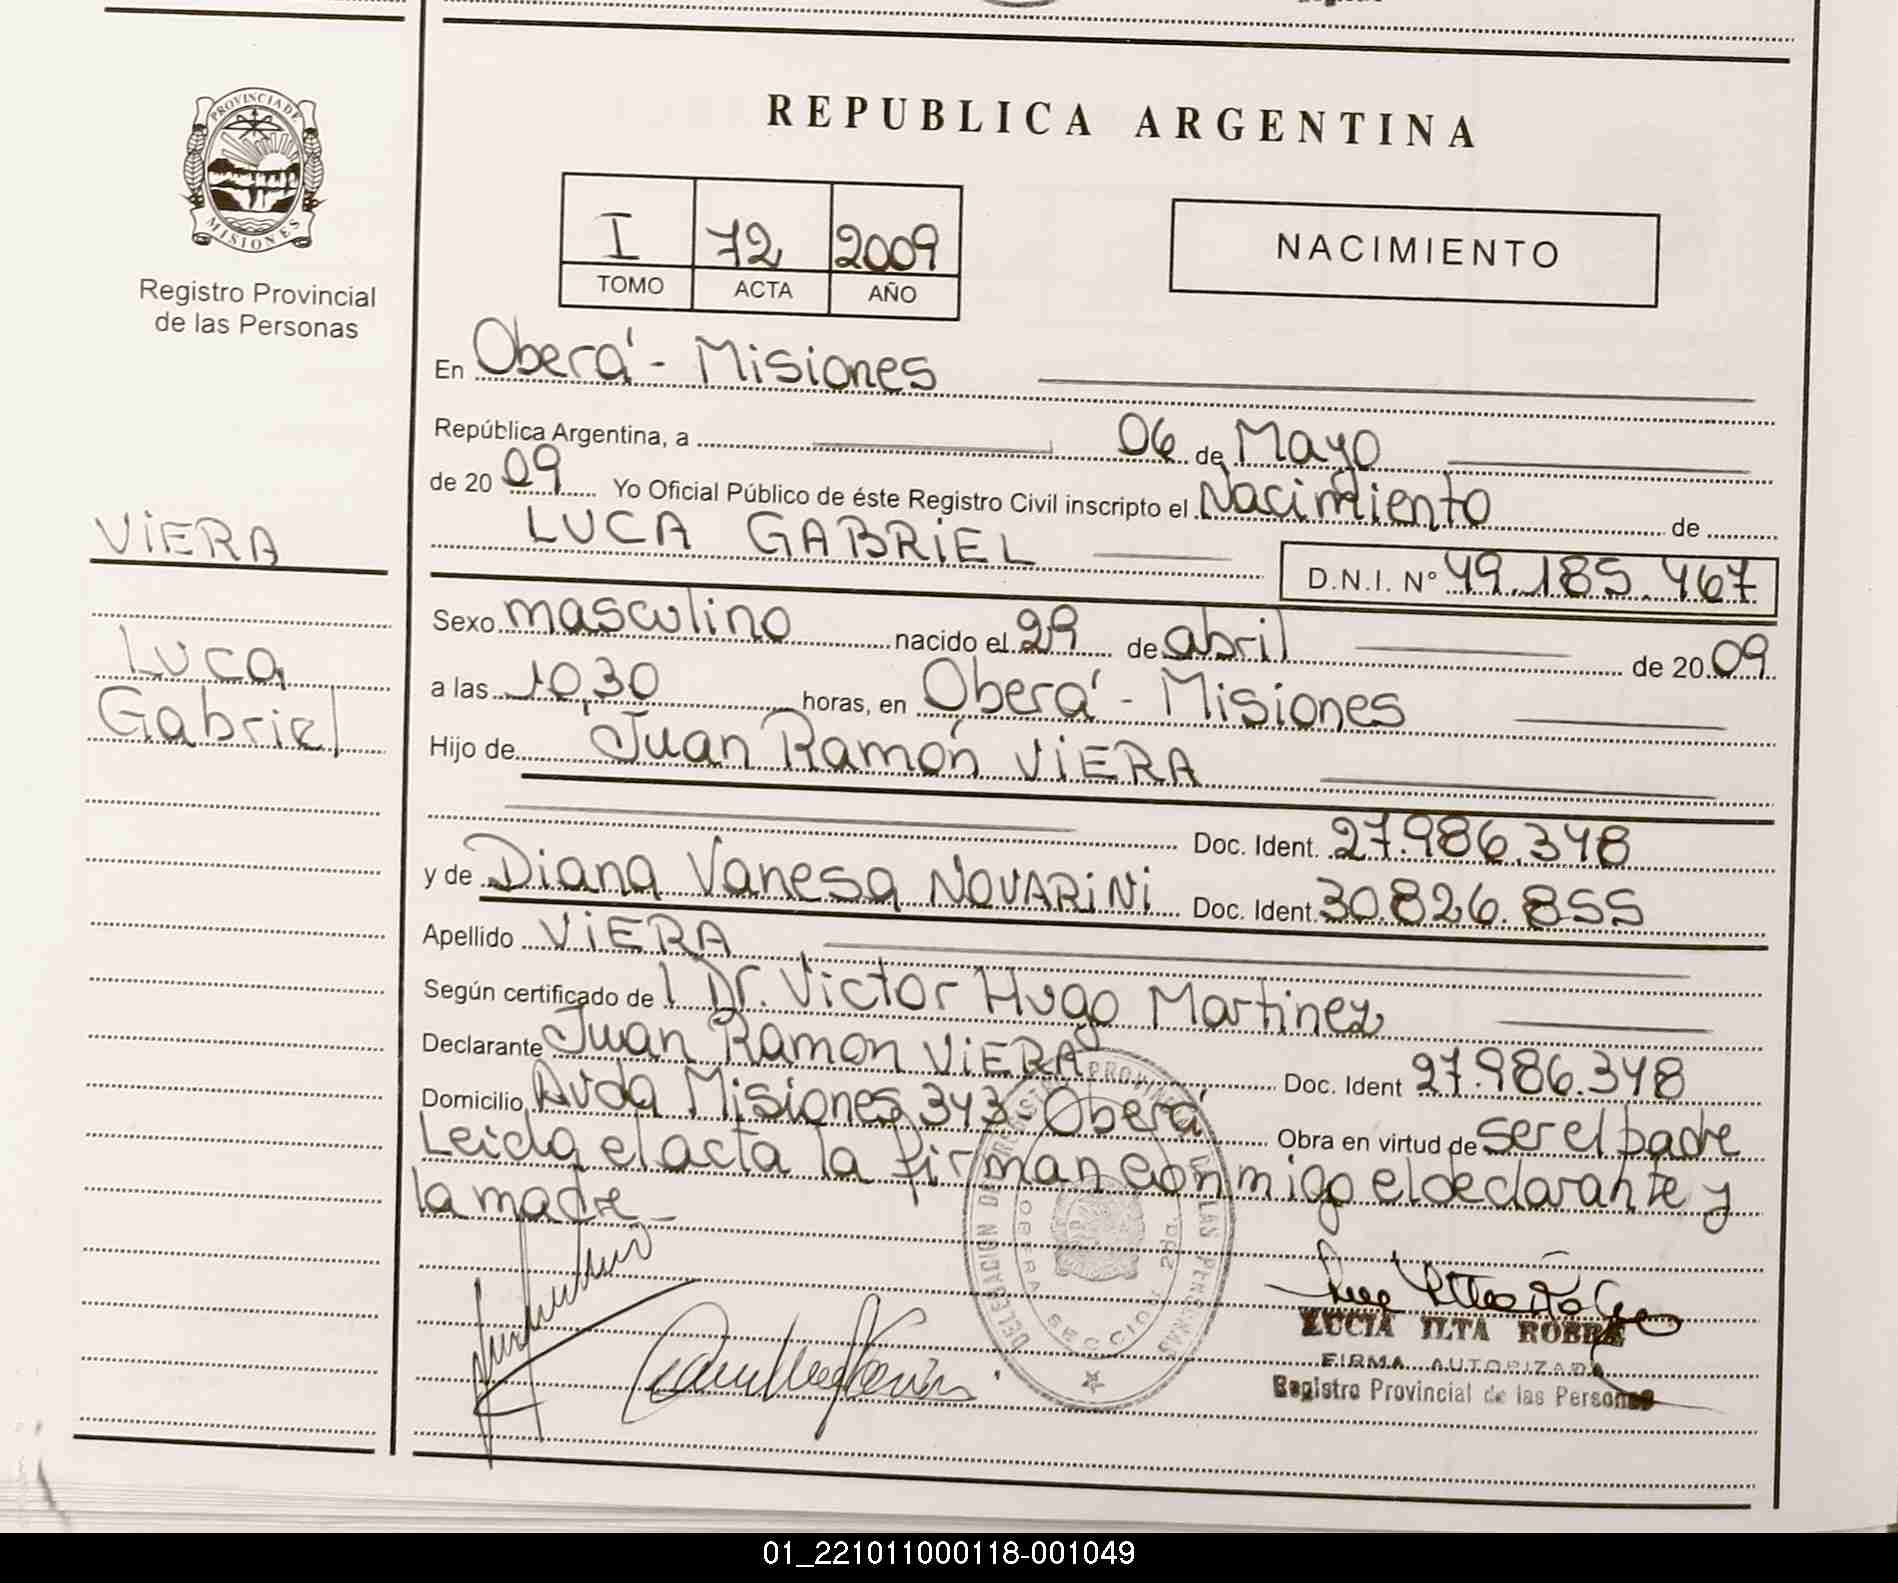 PROVINCIA DE
MISIONES
Registro Provincial
de las Personas
VIERA
Luca
Gabriel
REPUBLICA ARGENTINA
I 72 2009
TOMO ACTA AÑO
NACIMIENTO
En Oberá - Misiones
República Argentina, a 06 de Mayo
de 2009 Yo Oficial Público de éste Registro Civil inscripto el Nacimiento de
LUCA GABRIEL D.N.I. Nº 49.185.467
Sexo masculino nacido el 29 de abril de 2009
a las 10,30 horas, en Oberá - Misiones
Hijo de Juan Ramón VIERA
Doc. Ident. 27.986.348
y de Diana Vanesa NOVARINI Doc. Ident. 30.826.855
Apellido VIERA
Según certificado de l Dr. Victor Hugo Martinez
Declarante Juan Ramon VIERA Doc. Ident 27.986.348
Domicilio Avda Misiones 343 - Oberá Obra en virtud de ser el padre
Leida el acta la firman conmigo el declarante y
la madre_
DELEGACION DEL REGISTRO PROVINCIAL DE LAS PERSONAS
OBERA SECCION 2da.
LUCIA ILTA ROBRE
FIRMA AUTORIZADA
Registro Provincial de las Personas
01_221011000118-001049